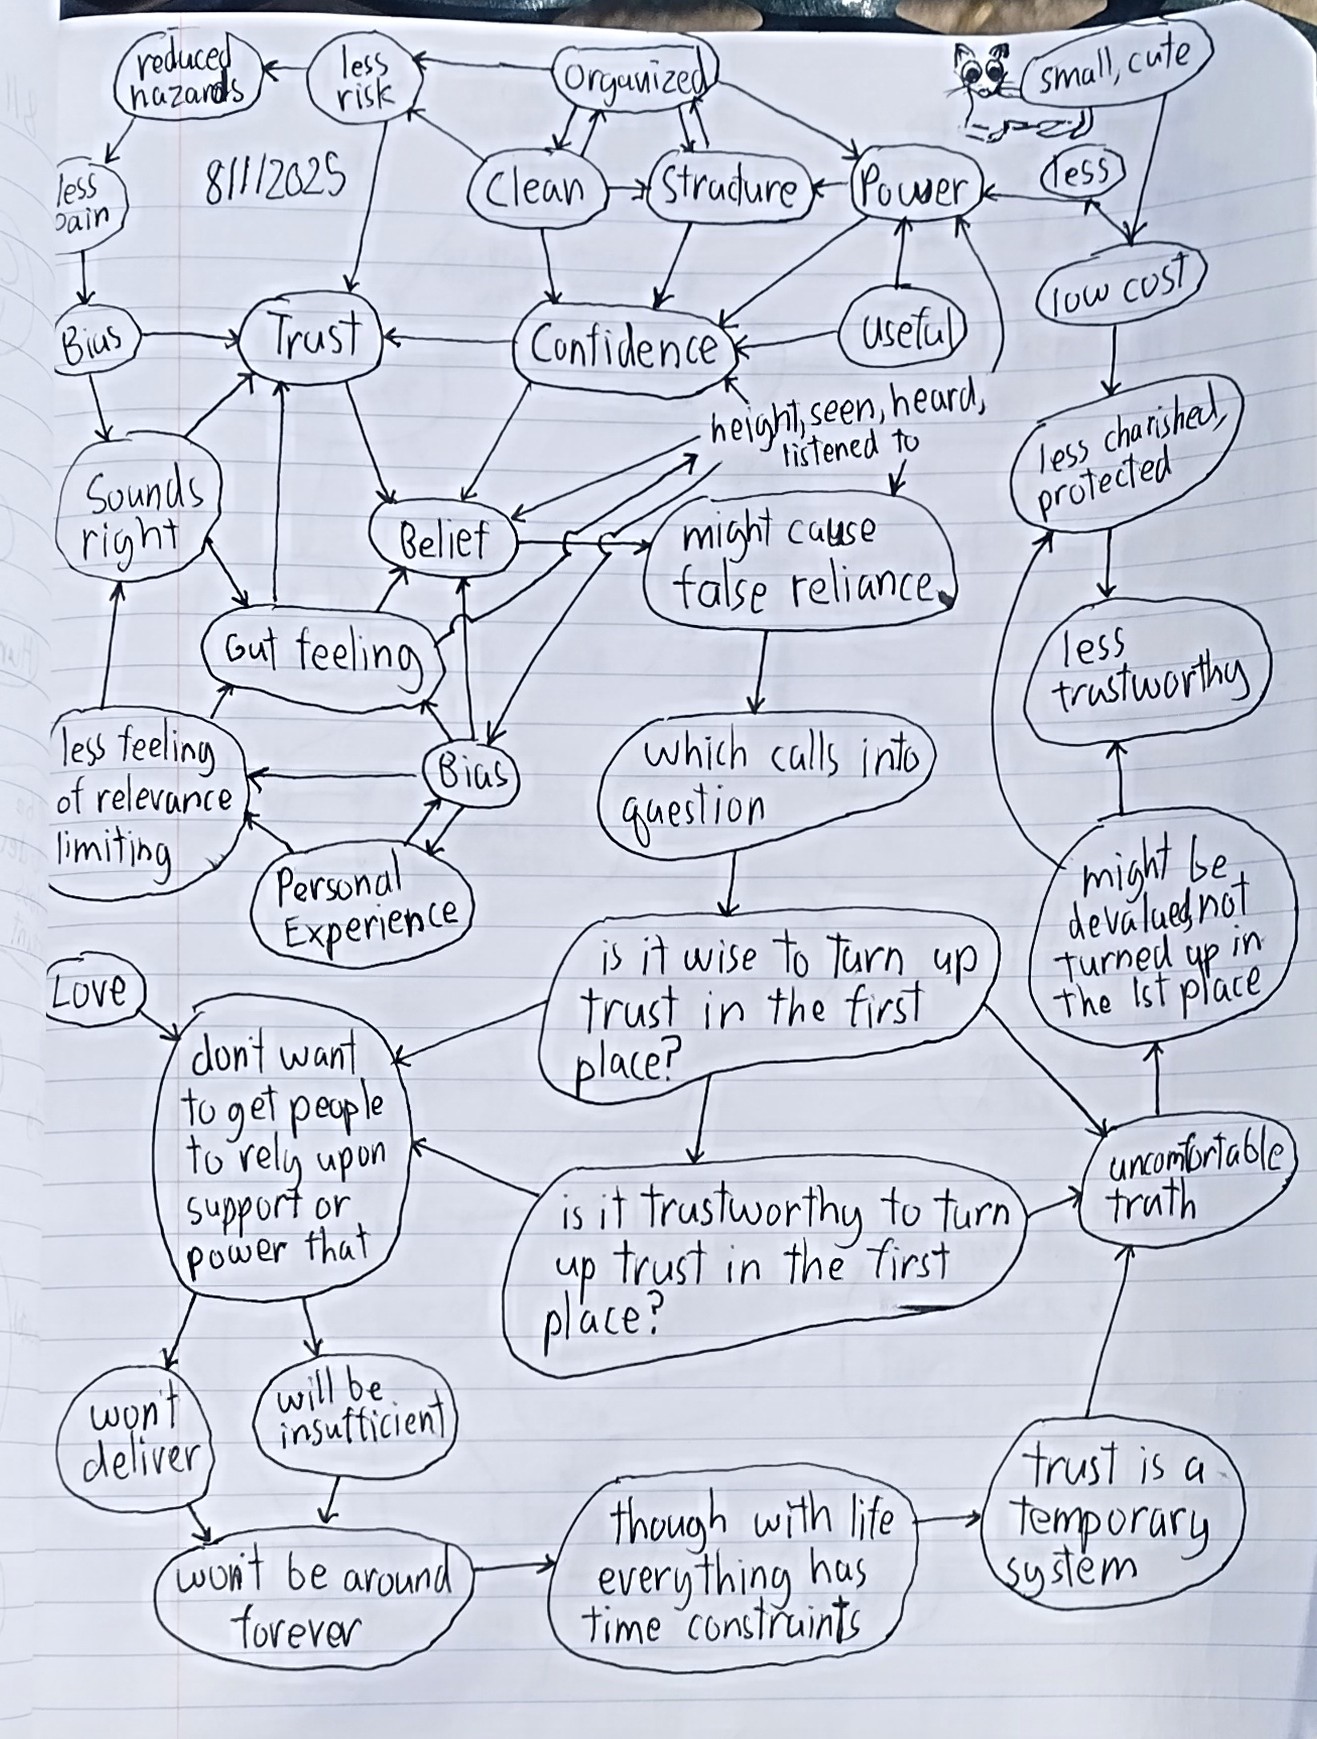 reduced
hazards
less
risk
Organized
small, cute
less
pain
8/1/2025
Clean
Structure
Power
less
low cost
Bias
Trust
Confidence
useful
height, seen, heard,
listened to
less charished,
protected
Sounds
right
Belief
might cause
false reliance
less
trustworthy
Gut feeling
less feeling
of relevance
limiting
Bias
which calls into
question
Personal
Experience
might be
devalued, not
turned up in
the 1st place
Love
is it wise to turn up
trust in the first
place?
don't want
to get people
to rely upon
support or
power that
uncomfortable
truth
is it trustworthy to turn
up trust in the first
place?
won't
deliver
will be
insufficient
though with life
everything has
time constraints
trust is a
temporary
system
won't be around
forever